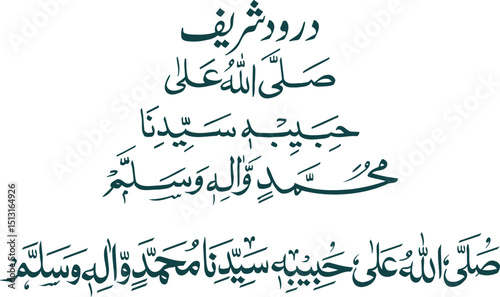 درود شریف
صَلَّى اللهُ عَلىٰ
حَبِيبِهٖ سَيِّدِنَا
مُحَمَّدٍ وَّاٰلِهٖ وَسَلَّمْ
صَلَّى اللهُ عَلىٰ حَبِيبِهٖ سَيِّدِنَا مُحَمَّدٍ وَّاٰلِهٖ وَسَلَّمْ
Adobe Stock | #1513164926